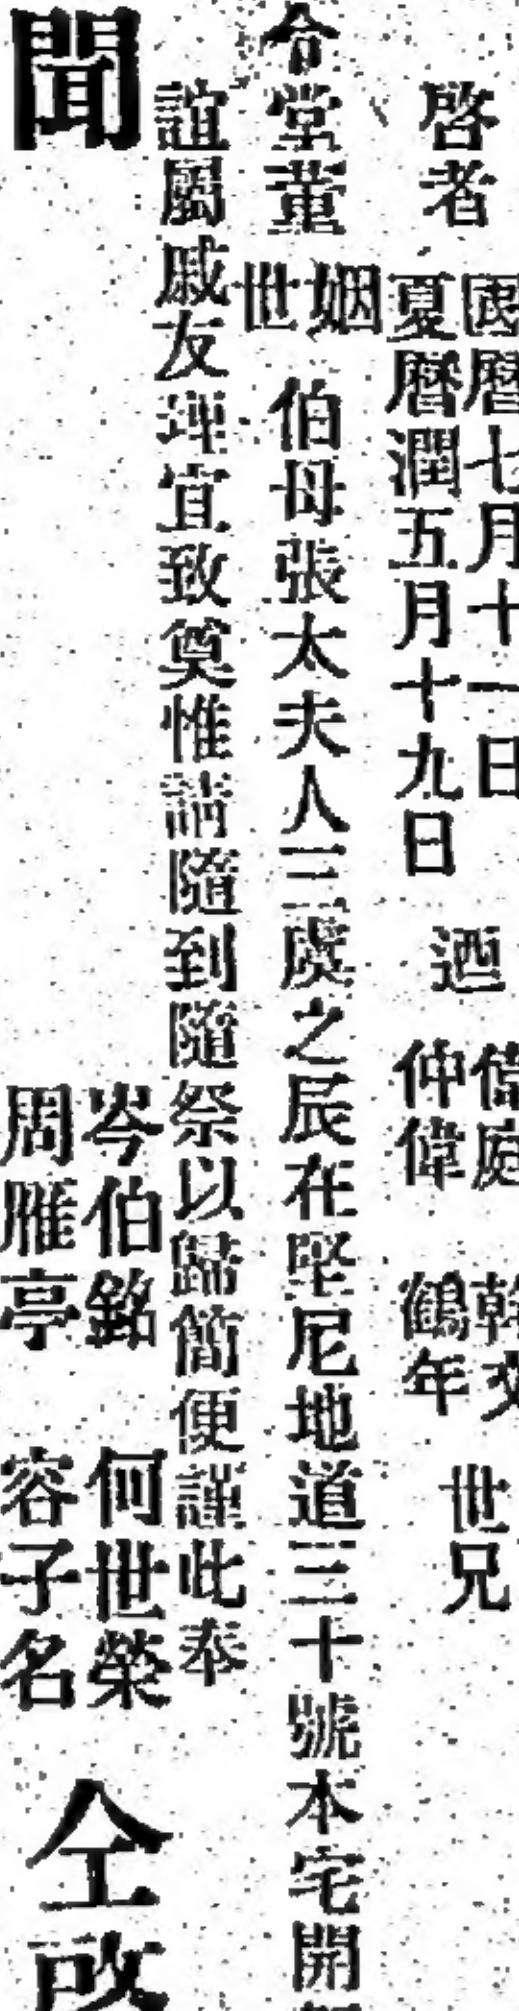 啓者
國曆七月十一日
夏曆潤五月十九日
迺
偉庭
仲偉
鶴年
世兄
令堂董
姻
世
伯母張太夫人三虞之辰在堅尼地道三十號本宅開
誼屬戚友理宜致奠惟請隨到隨祭以歸簡便謹此奉
聞
岑伯銘
何世榮
周雁亭
容子名
仝啟